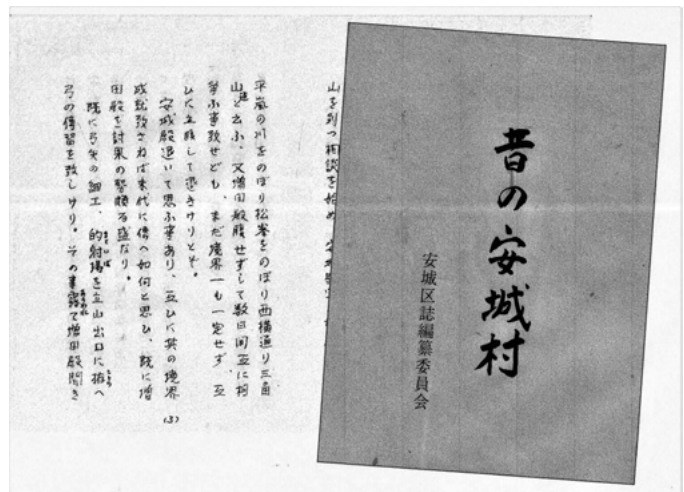 昔の安城村
安城区誌編纂委員会
相談を始め
平嵐の川をのぼり松峯をのぼり西横通り三角
山迄と云ふ、又増田殿腹せずして数日間互に相
争ふ事致せども、未だ境界一も一定せず、互
ひに立腹して退きけりとぞ。
安城殿退いて思ふ事あり、互ひに其の境界
成就致さねば末代に傳へ如何と思ひ、既に増
田殿を討果の頗る盛なり。
既に弓矢の細工、的射場を立山出口に捺へ
弓の傳習を致しけり。その事露て増田殿聞き
(3)